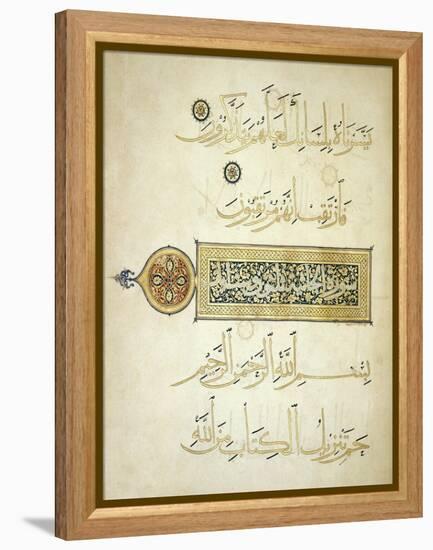 يَسَّرْنَاهُ بِلِسَانِكَ لَعَلَّهُمْ يَتَذَكَّرُونَ
فَارْتَقِبْ إِنَّهُمْ مُرْتَقِبُونَ
بِسْمِ اللَّهِ الرَّحْمَنِ الرَّحِيمِ
حم تَنْزِيلُ الْكِتَابِ مِنَ اللَّهِ